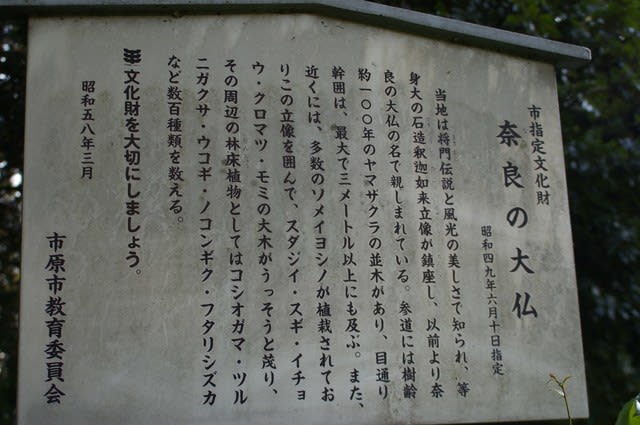 市指定文化財
奈良の大仏
昭和四九年六月十日指定
当地は将門伝説と風光の美しさで知られ、等
身大の石造釈迦如来立像が鎮座し、以前より奈
良の大仏の名で親しまれている。参道には樹齢
約一〇〇年のヤマザクラの並木があり、目通り
幹囲は、最大で三メートル以上にも及ぶ。また、
近くには、多数のソメイヨシノが植栽されてお
りこの立像を囲んで、スダジイ・スギ・イチョ
ウ・クロマツ・モミの大木がうっそうと茂り、
その周辺の林床植物としてはコシオガマ・ツル
ニガクサ・ウコギ・ノコンギク・フタリシズカ
など数百種類を数える。
文化財を大切にしましょう。
昭和五八年三月
市原市教育委員会